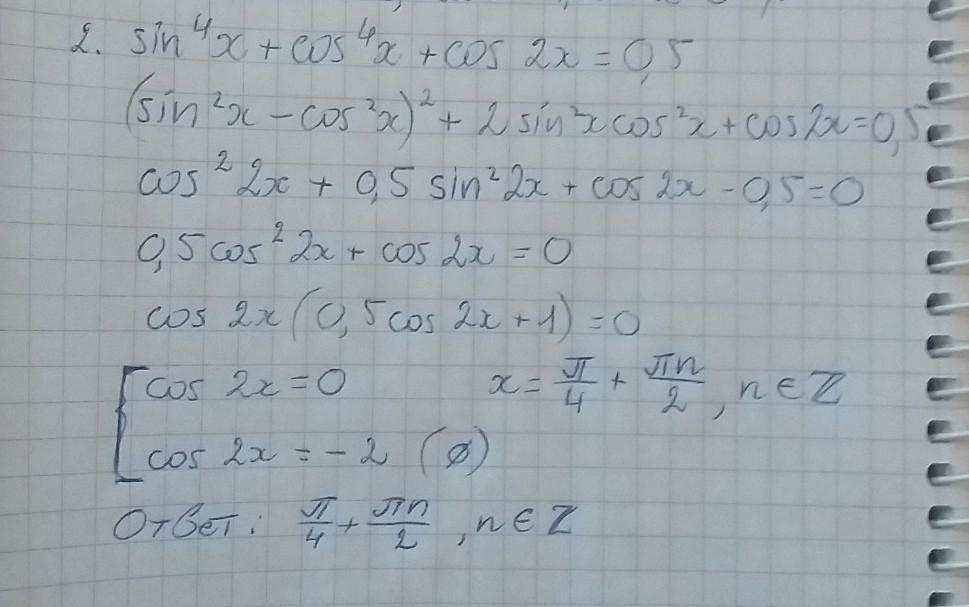 2. sin⁴x + cos⁴x + cos 2x = 0,5
(sin²x - cos²x)² + 2 sin²x cos²x + cos 2x = 0,5
cos² 2x + 0,5 sin² 2x + cos 2x - 0,5 = 0
0,5 cos² 2x + cos 2x = 0
cos 2x (0,5 cos 2x + 1) = 0
[ cos 2x = 0 x = π/4 + πn/2, n ∈ Z
cos 2x = -2 (∅)
Ответ: π/4 + πn/2, n ∈ Z